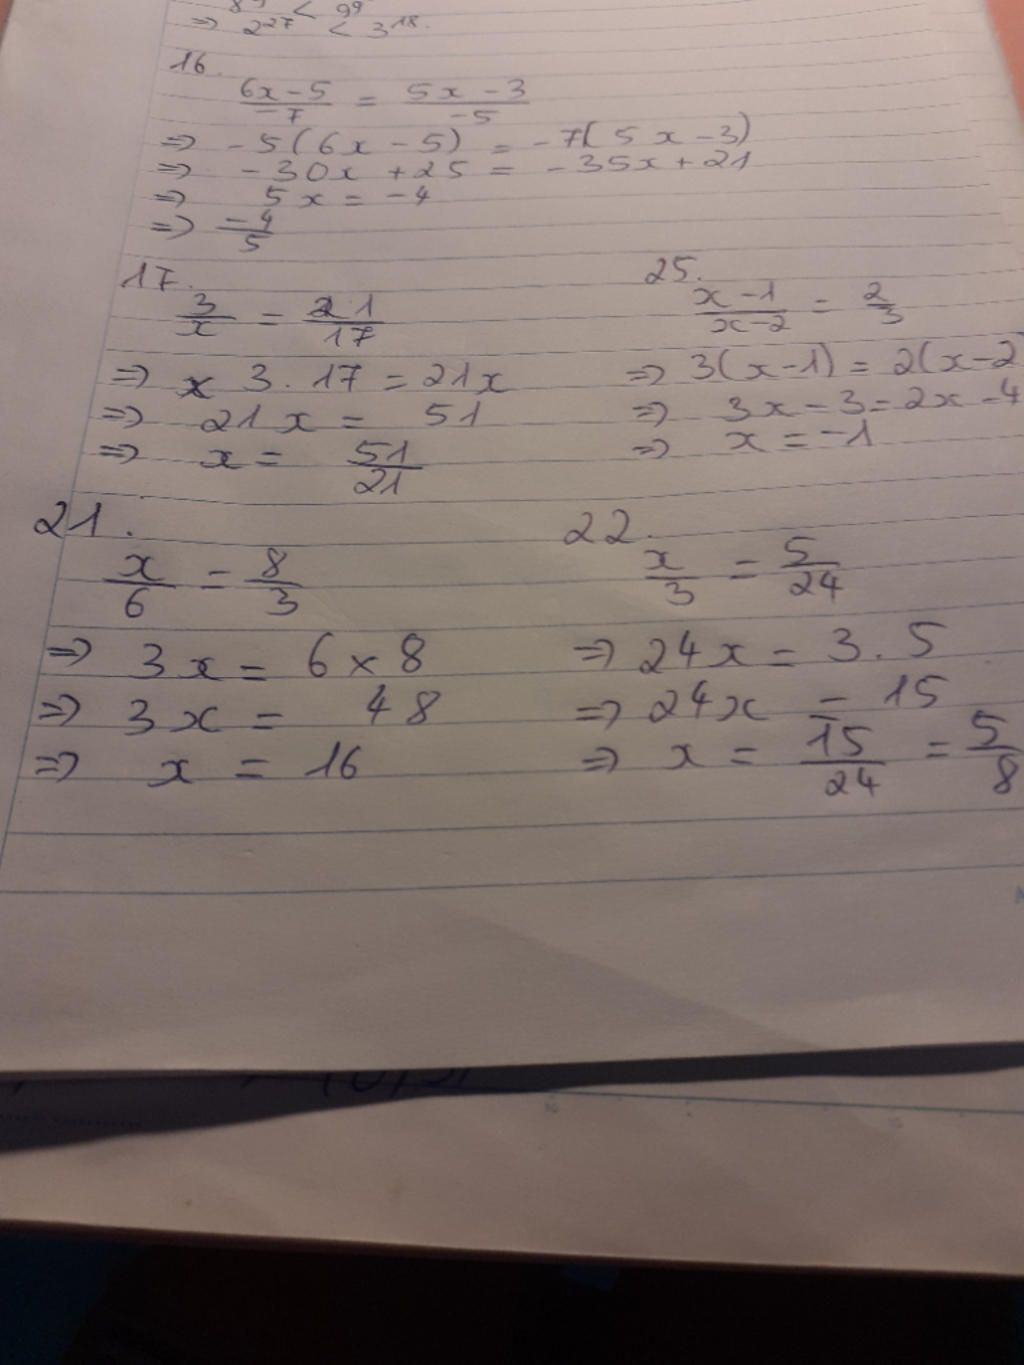 8⁹ < 9⁹
⇒ 2²⁷ < 3¹⁸.
16.
(6x-5)/(-7) = (5x-3)/(-5)
⇒ -5(6x-5) = -7(5x-3)
⇒ -30x +25 = -35x+21
⇒ 5x = -4
⇒ -4/5
17.
3/x = 21/17
⇒ x 3.17=21x
⇒ 21x = 51
⇒ x = 51/21
25.
(x-1)/(x-2) = 2/3
⇒ 3(x-1) = 2(x-2
⇒ 3x-3=2x-4
⇒ x = -1
21.
x/6 = 8/3
⇒ 3x = 6×8
⇒ 3x = 48
⇒ x = 16
22.
x/3 = 5/24
⇒ 24x = 3.5
⇒ 24x = 15
⇒ x = 15/24 = 5/8